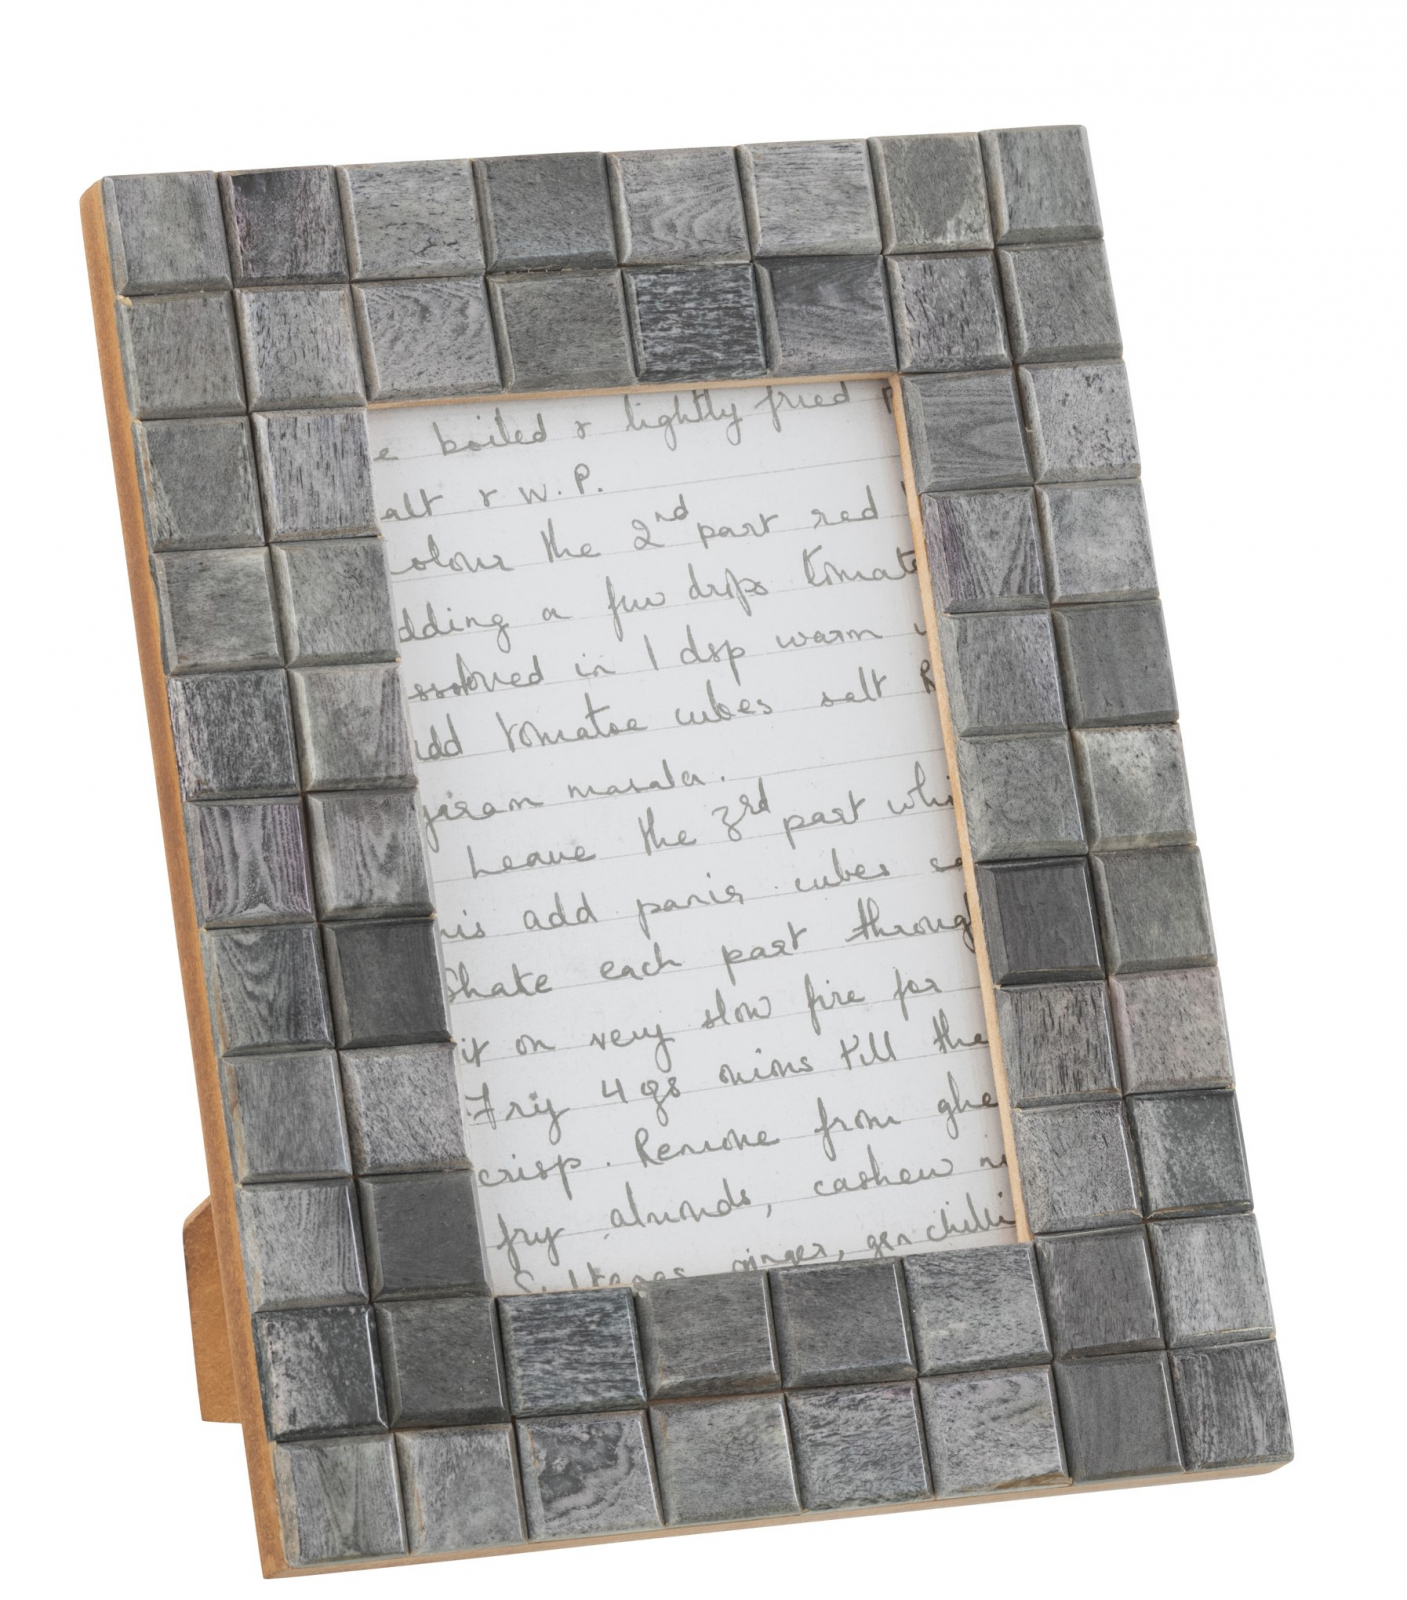 e boiled & lightly fried
alt & W.P.
olour the 2nd part red
dding a few drops tomato
ssolved in 1 dsp warm
dd tomatoe cubes salt
garam masala.
Leave the 3rd part whi
is add panir cubes sa
Shake each part throug
it on very slow fire for
Fry 4 gs onions till the
crisp. Remove from ghe
fry almonds, cashew n
Sultanas ginger, gen chilli